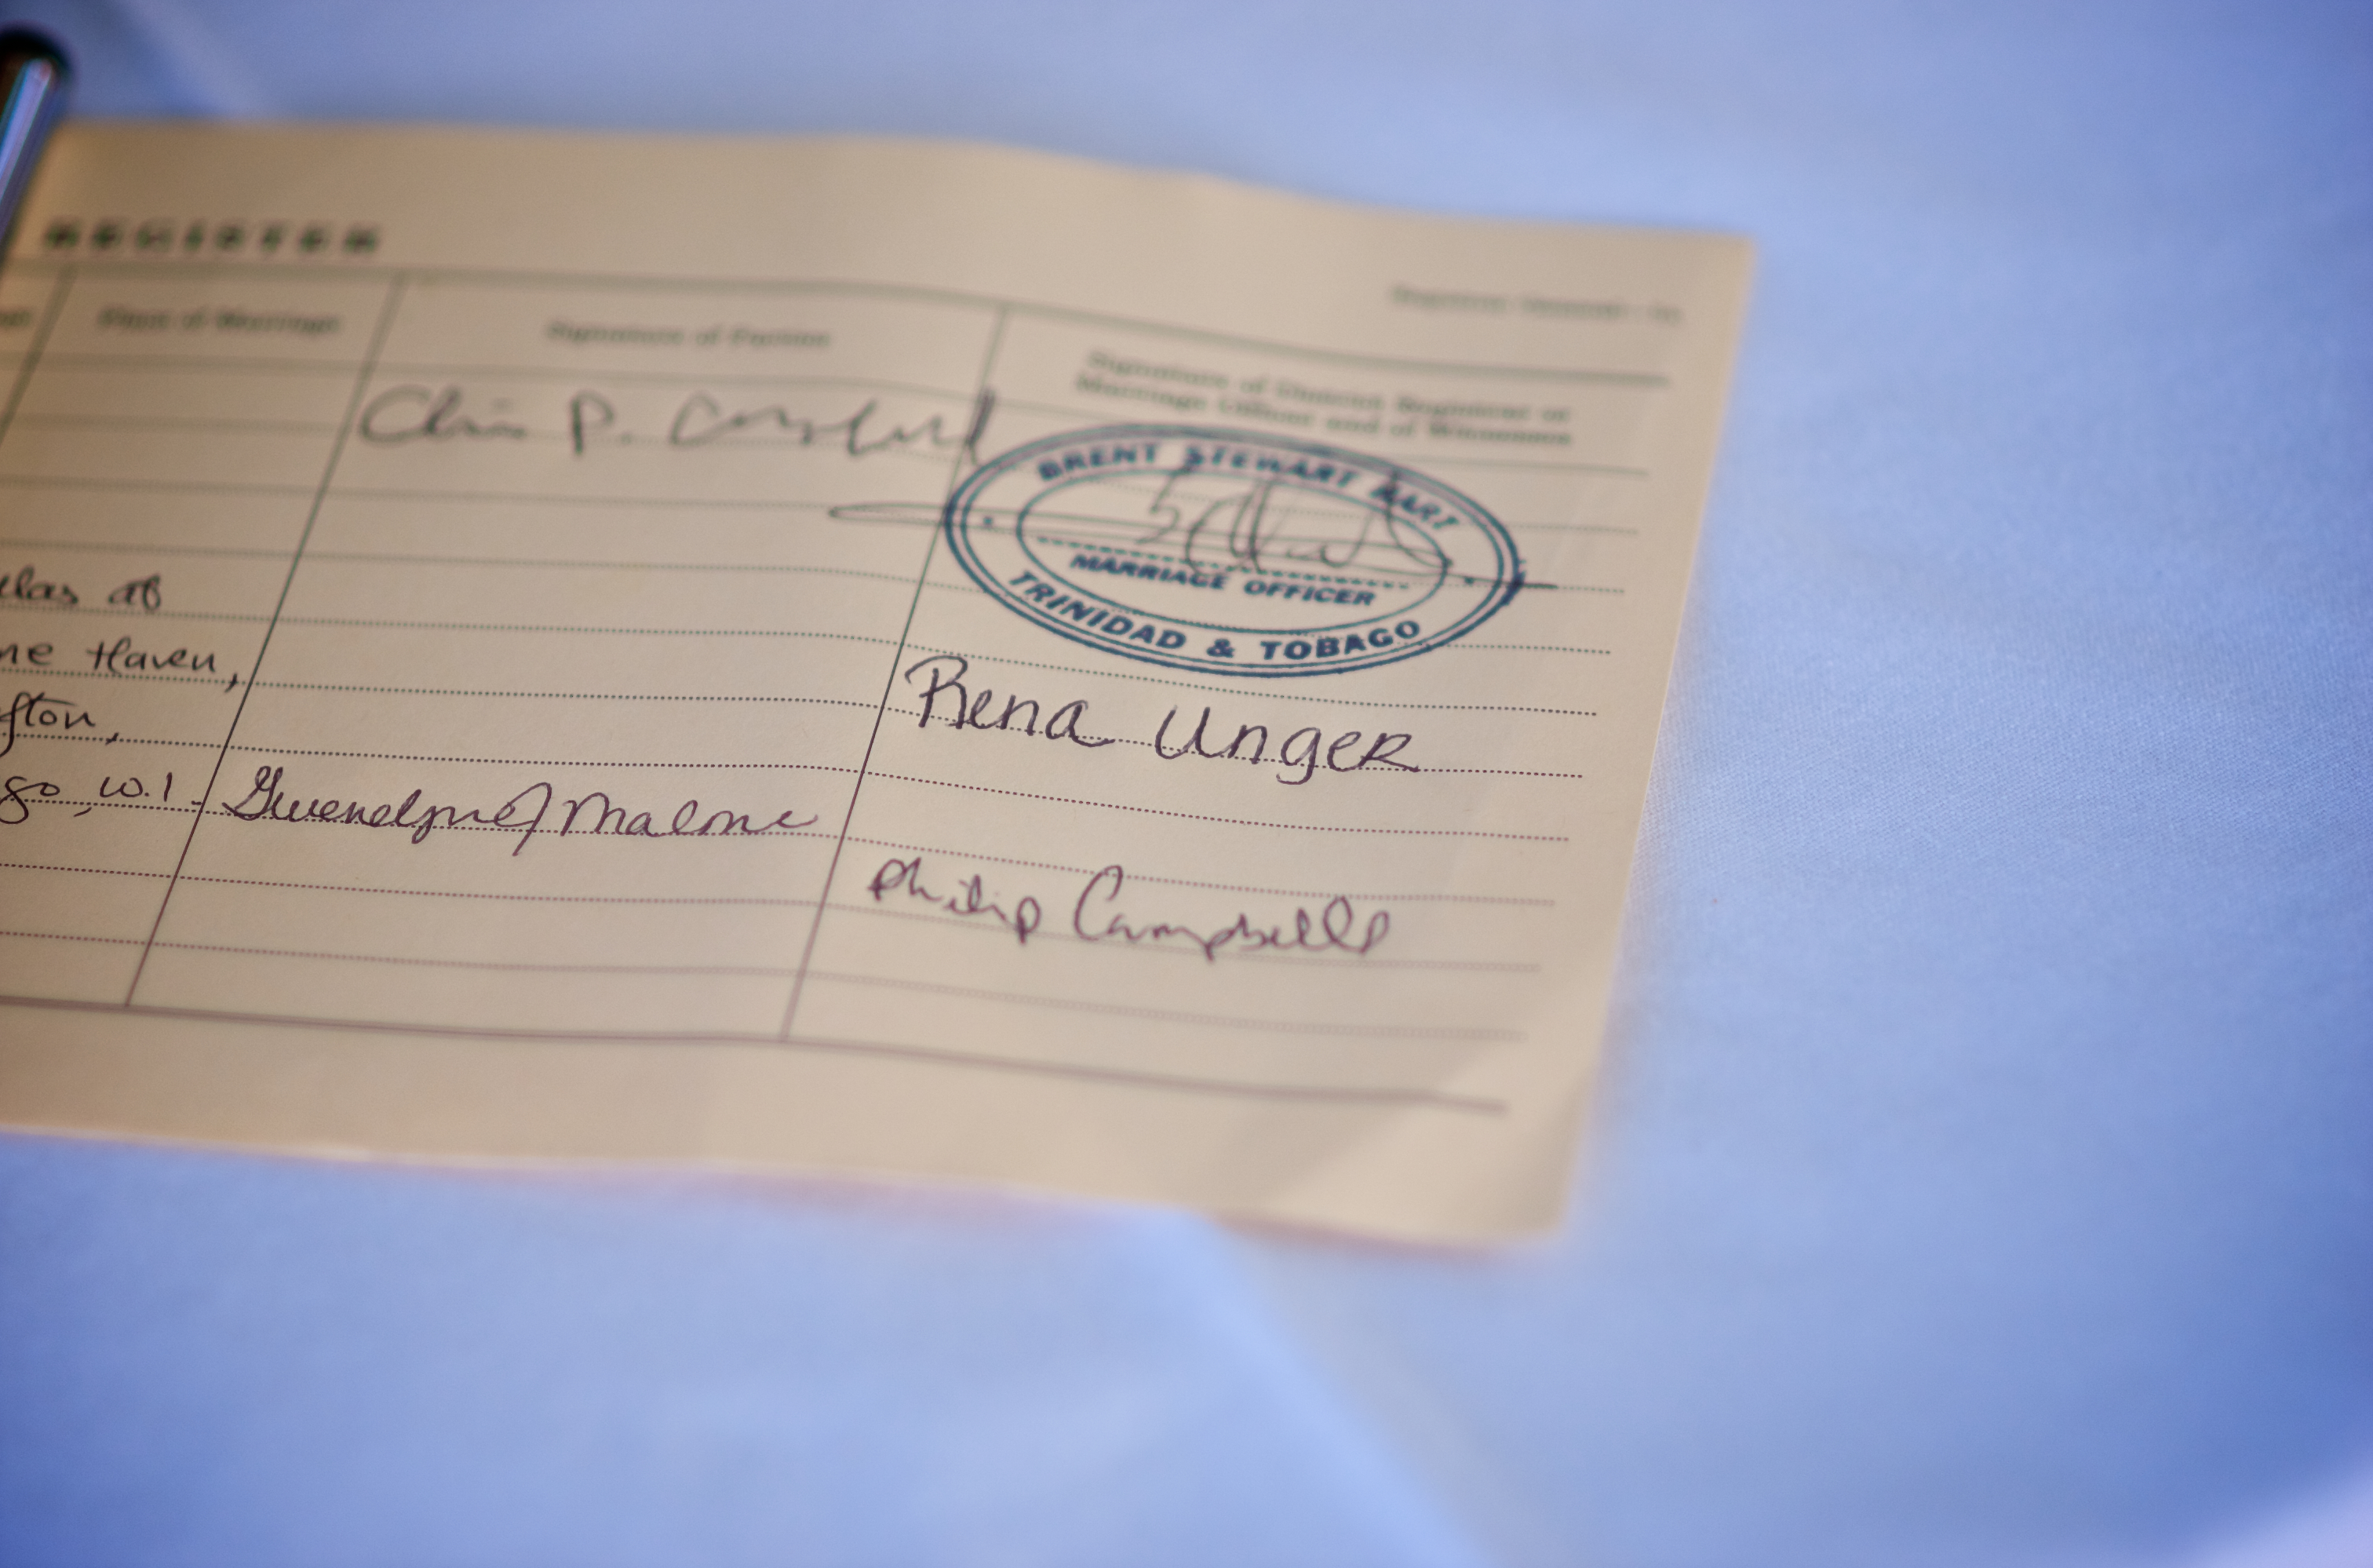 REGISTER
Place of Marriage
Signature of Parties
Signature of District Registrar or
Marriage Officer and of Witnesses
Chris P. Campbell
BRENT STEWART HART
MARRIAGE OFFICER
TRINIDAD & TOBAGO
at
Haven,
Rena Unger
w.1.
Gwendlyne J Malone
Philip Campbell